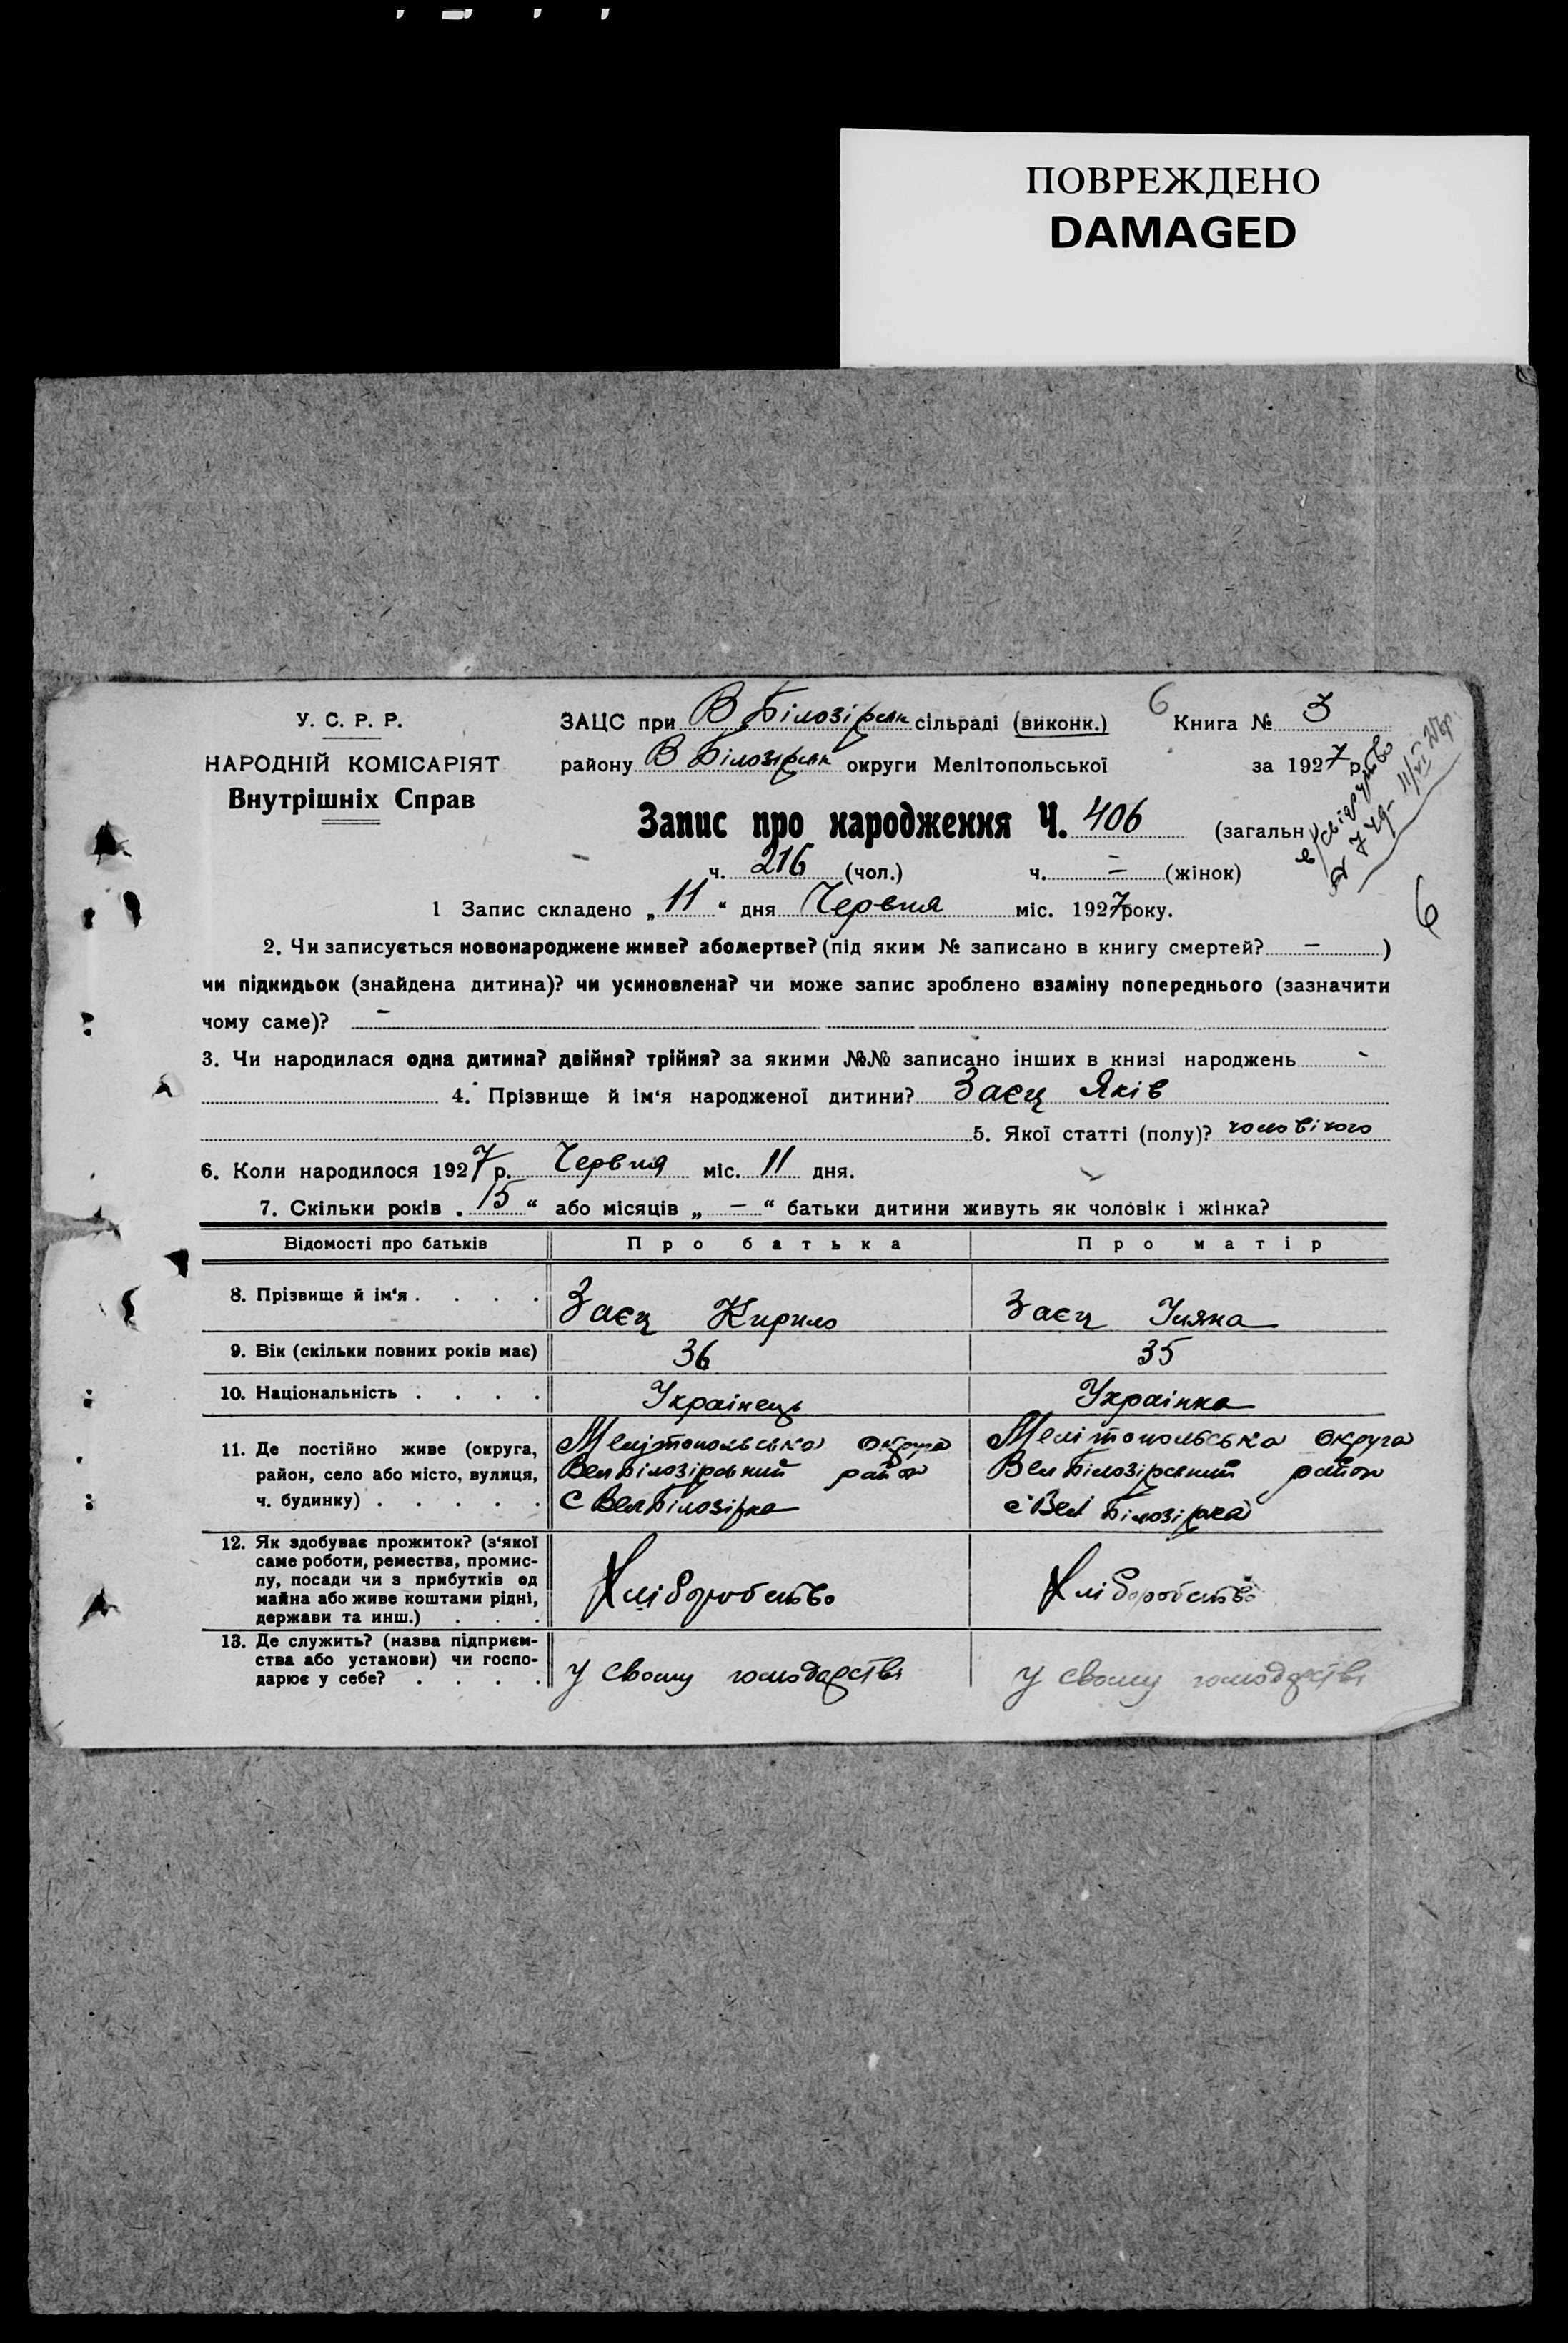 ПОВРЕЖДЕНО
DAMAGED
У. С. Р. Р.
НАРОДНІЙ КОМІСАРІЯТ
Внутрішніх Справ
ЗАЦС при В Білозірськ сільраді (виконк.) 6 Книга № 3
району В Білозірськ округи Мелітопольської за 1927 р.
Запис про народження Ч. 406 (загальн
ч. 216 (чол.) ч. – (жінок)
6
1 Запис складено „11“ дня Червня міс. 1927 року.
2. Чи записується новонароджене живе? або мертве? (під яким № записано в книгу смертей? – )
чи підкидьок (знайдена дитина)? чи усиновлена? чи може запис зроблено взаміну попереднього (зазначити
чому саме)? –
3. Чи народилася одна дитина? двійня? трійня? за якими №№ записано інших в книзі народжень -
4. Прізвище й ім‘я народженої дитини? Заєц Яків
5. Якої статті (полу)? чоловічого
6. Коли народилося 1927 р. Червня міс. 11 дня.
7. Скільки років „15“ або місяців „–“ батьки дитини живуть як чоловік і жінка?
Відомості про батьків Про батька Про матір
8. Прізвище й ім‘я . . . . Заєц Кирило Заєц Уляна
9. Вік (скільки повних років має) 36 35
10. Національність . . . . Українець Українка
11. Де постійно живе (округа, Мелітопольська округа Мелітопольська округа
район, село або місто, вулиця, Вел Білозірський район Вел Білозірський район
ч. будинку) . . . . . с Вел Білозірка с Вел Білозірка
12. Як здобуває прожиток? (з‘якої
саме роботи, ремества, промис-
лу, посади чи з прибутків од Хліборобство Хліборобство
майна або живе коштами рідні,
держави та инш.) . . .
13. Де служить? (назва підприєм-
ства або установи) чи госпо- у свому господарстві у свому господарстві
дарює у себе? . . . .